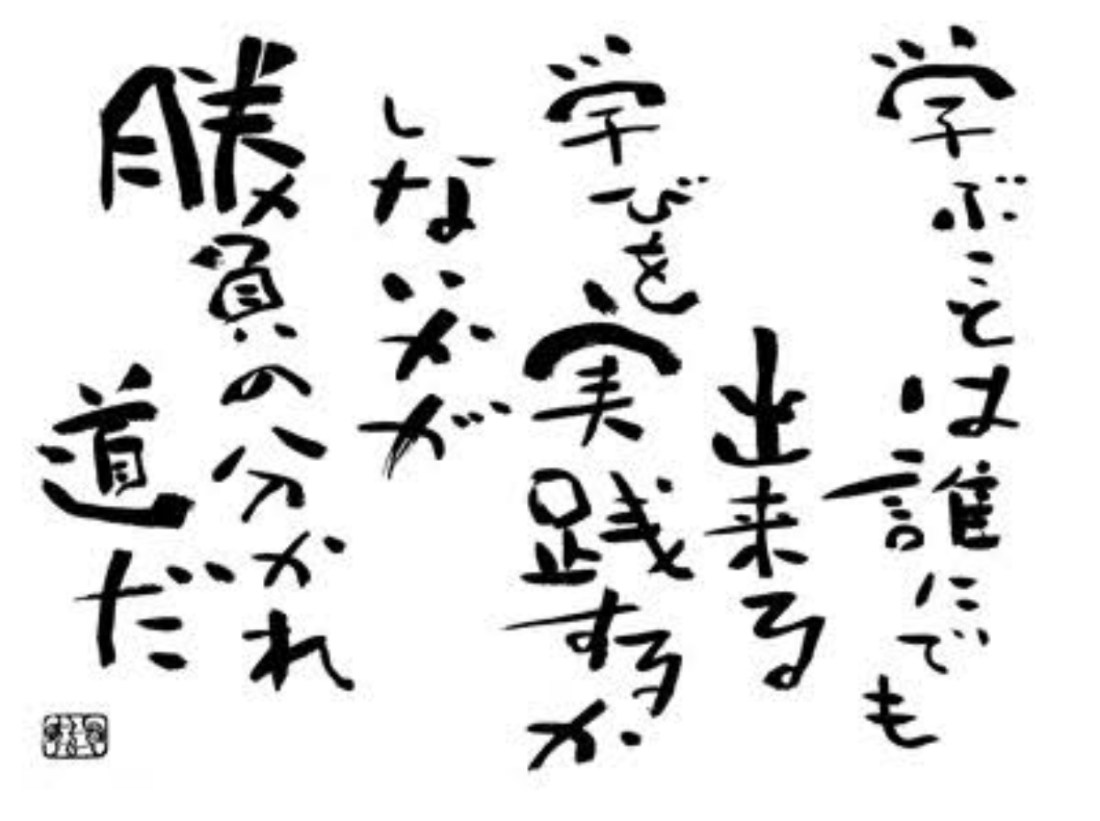 学ぶことは誰にでも
出来る
学びを実践するか
しないかが
勝負の分かれ
道だ